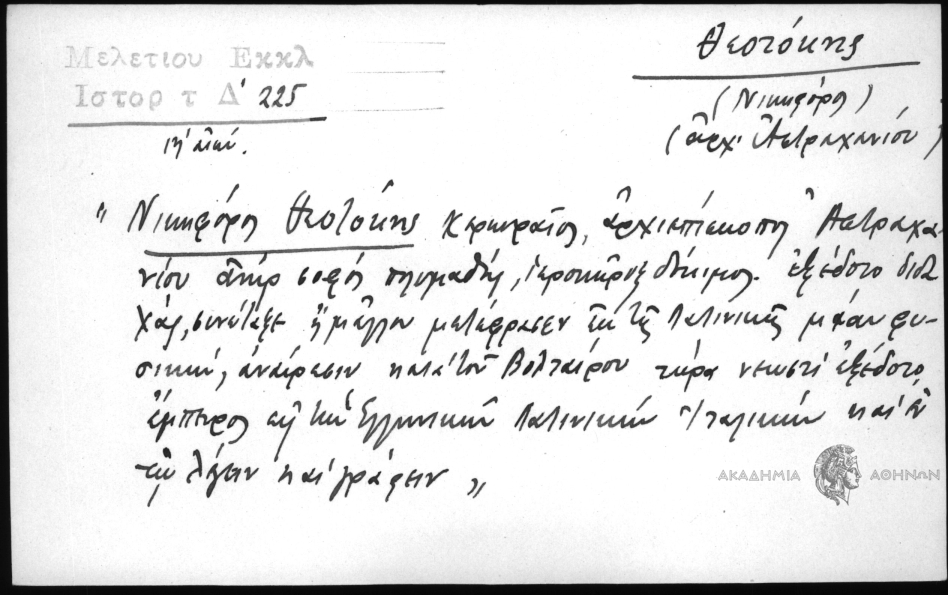 Μελετιου Εκκλ
Ιστορ τ Δ' 225
ιη' αἰών.
Θεοτόκης
(Νικηφόρος)
(ἀρχ. Ἀστραχανίου)
" Νικηφόρος Θεοτόκης Κερκυραῖος, ἀρχιεπίσκοπος Ἀστραχα-
νίου ἀνὴρ σοφὸς πολυμαθής, ἱεροκῆρυξ δόκιμος. ἐξέδοτο διδα
χάς, συνέταξε ἢ μᾶλλον μετέφρασεν ἐκ τῆς Λατινικῆς μίαν φυ-
σικήν, ἀναίρεσιν κατὰ τοῦ Βολταίρου τώρα νεωστὶ ἐξέδοτο,
ἔμπειρος εἰς τὴν Ἑλληνικὴν Λατινικὴν Ἰταλικὴν καὶ ἐν
τῷ λέγειν καὶ γράφειν "
ΑΚΑΔΗΜΙΑ ΑΘΗΝΩΝ